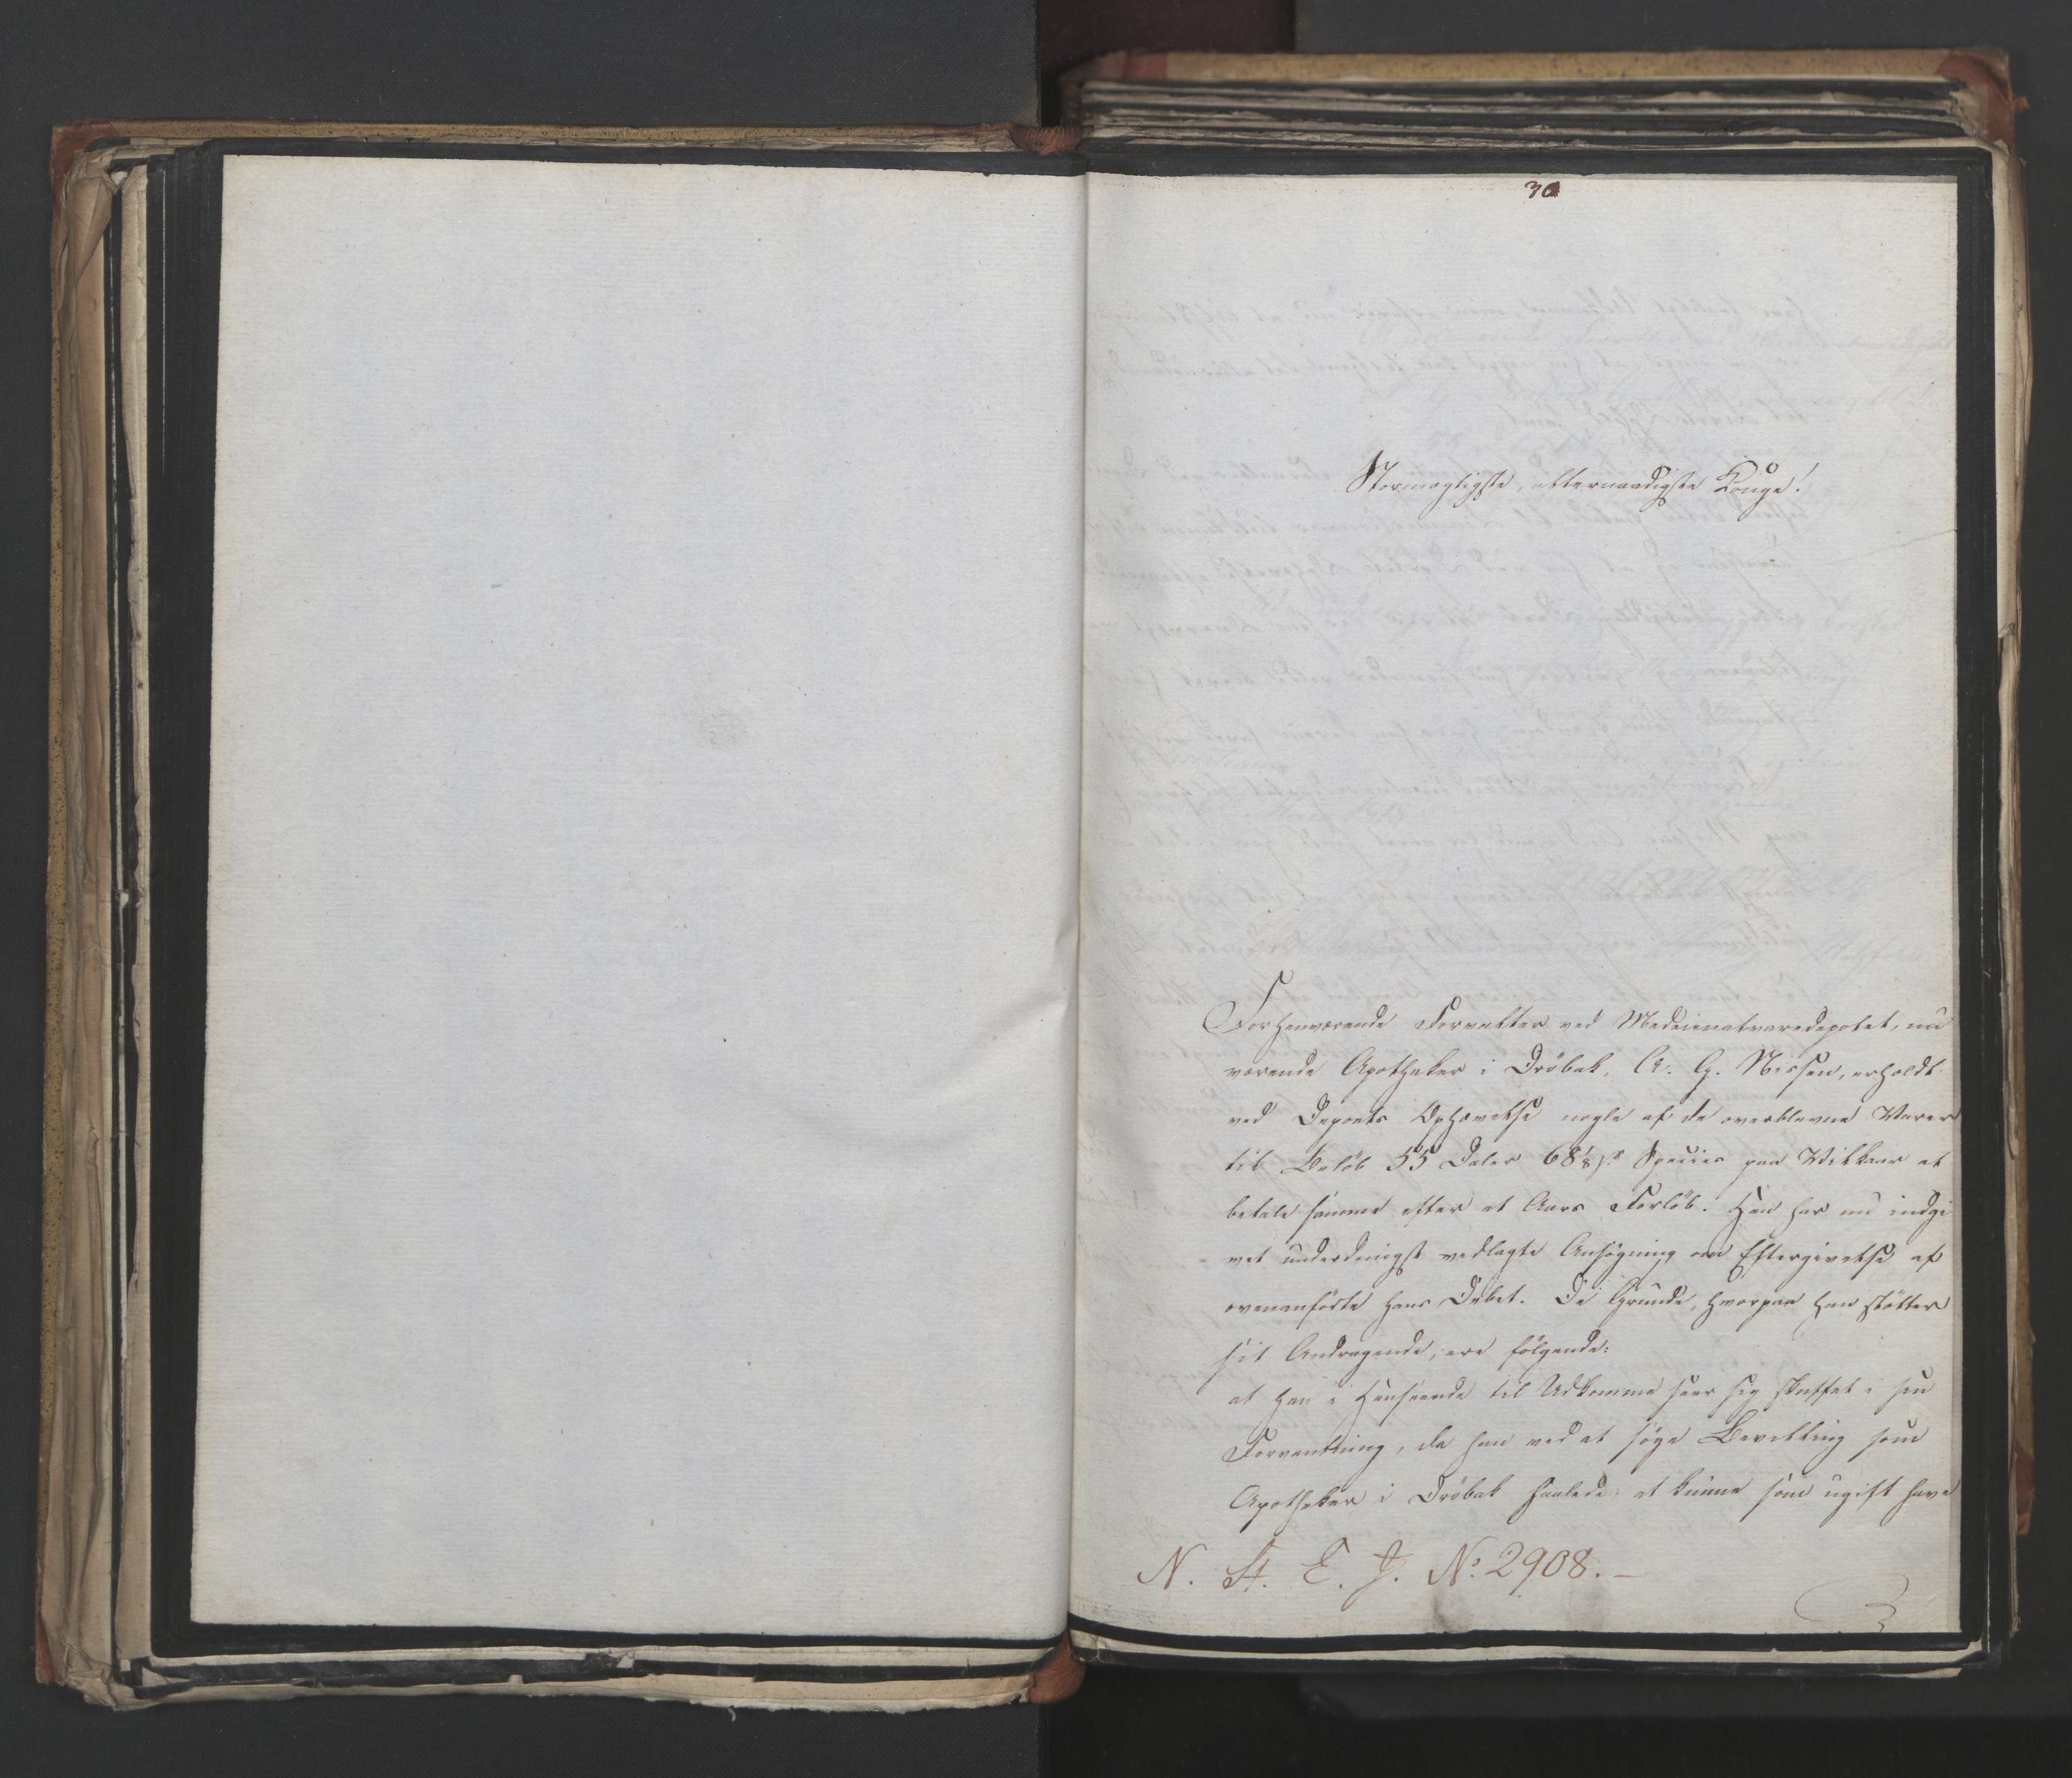 30
Stormægtigste, allernaadigste Konge!
Forhenværende Forvalter ved Medicinalvaredepotet, nu
værende Apotheker i Dröbak, A. G. Nissen, erholdt
ved Depoets Ophævelse nogle af de overblevne Varer
til Belöb 55 Daler 68⅛ s Species paa Vilkaar at
betale samme efter et Aars Forlöb. Han har nu indgi
vet underdanigst vedlagte Ansögning om Eftergivelse af
ovenanförte hans Debet. De Grunde, hvorpaa han stötter
sit Andragende, ere fölgende:
at han i Henseende til Udkomme seer sig skuffet i sin
Forventning, da han ved at söge Bevilling som
Apotheker i Dröbak haabede at kunne som ugift have
N. St. E. J. No. 2908.